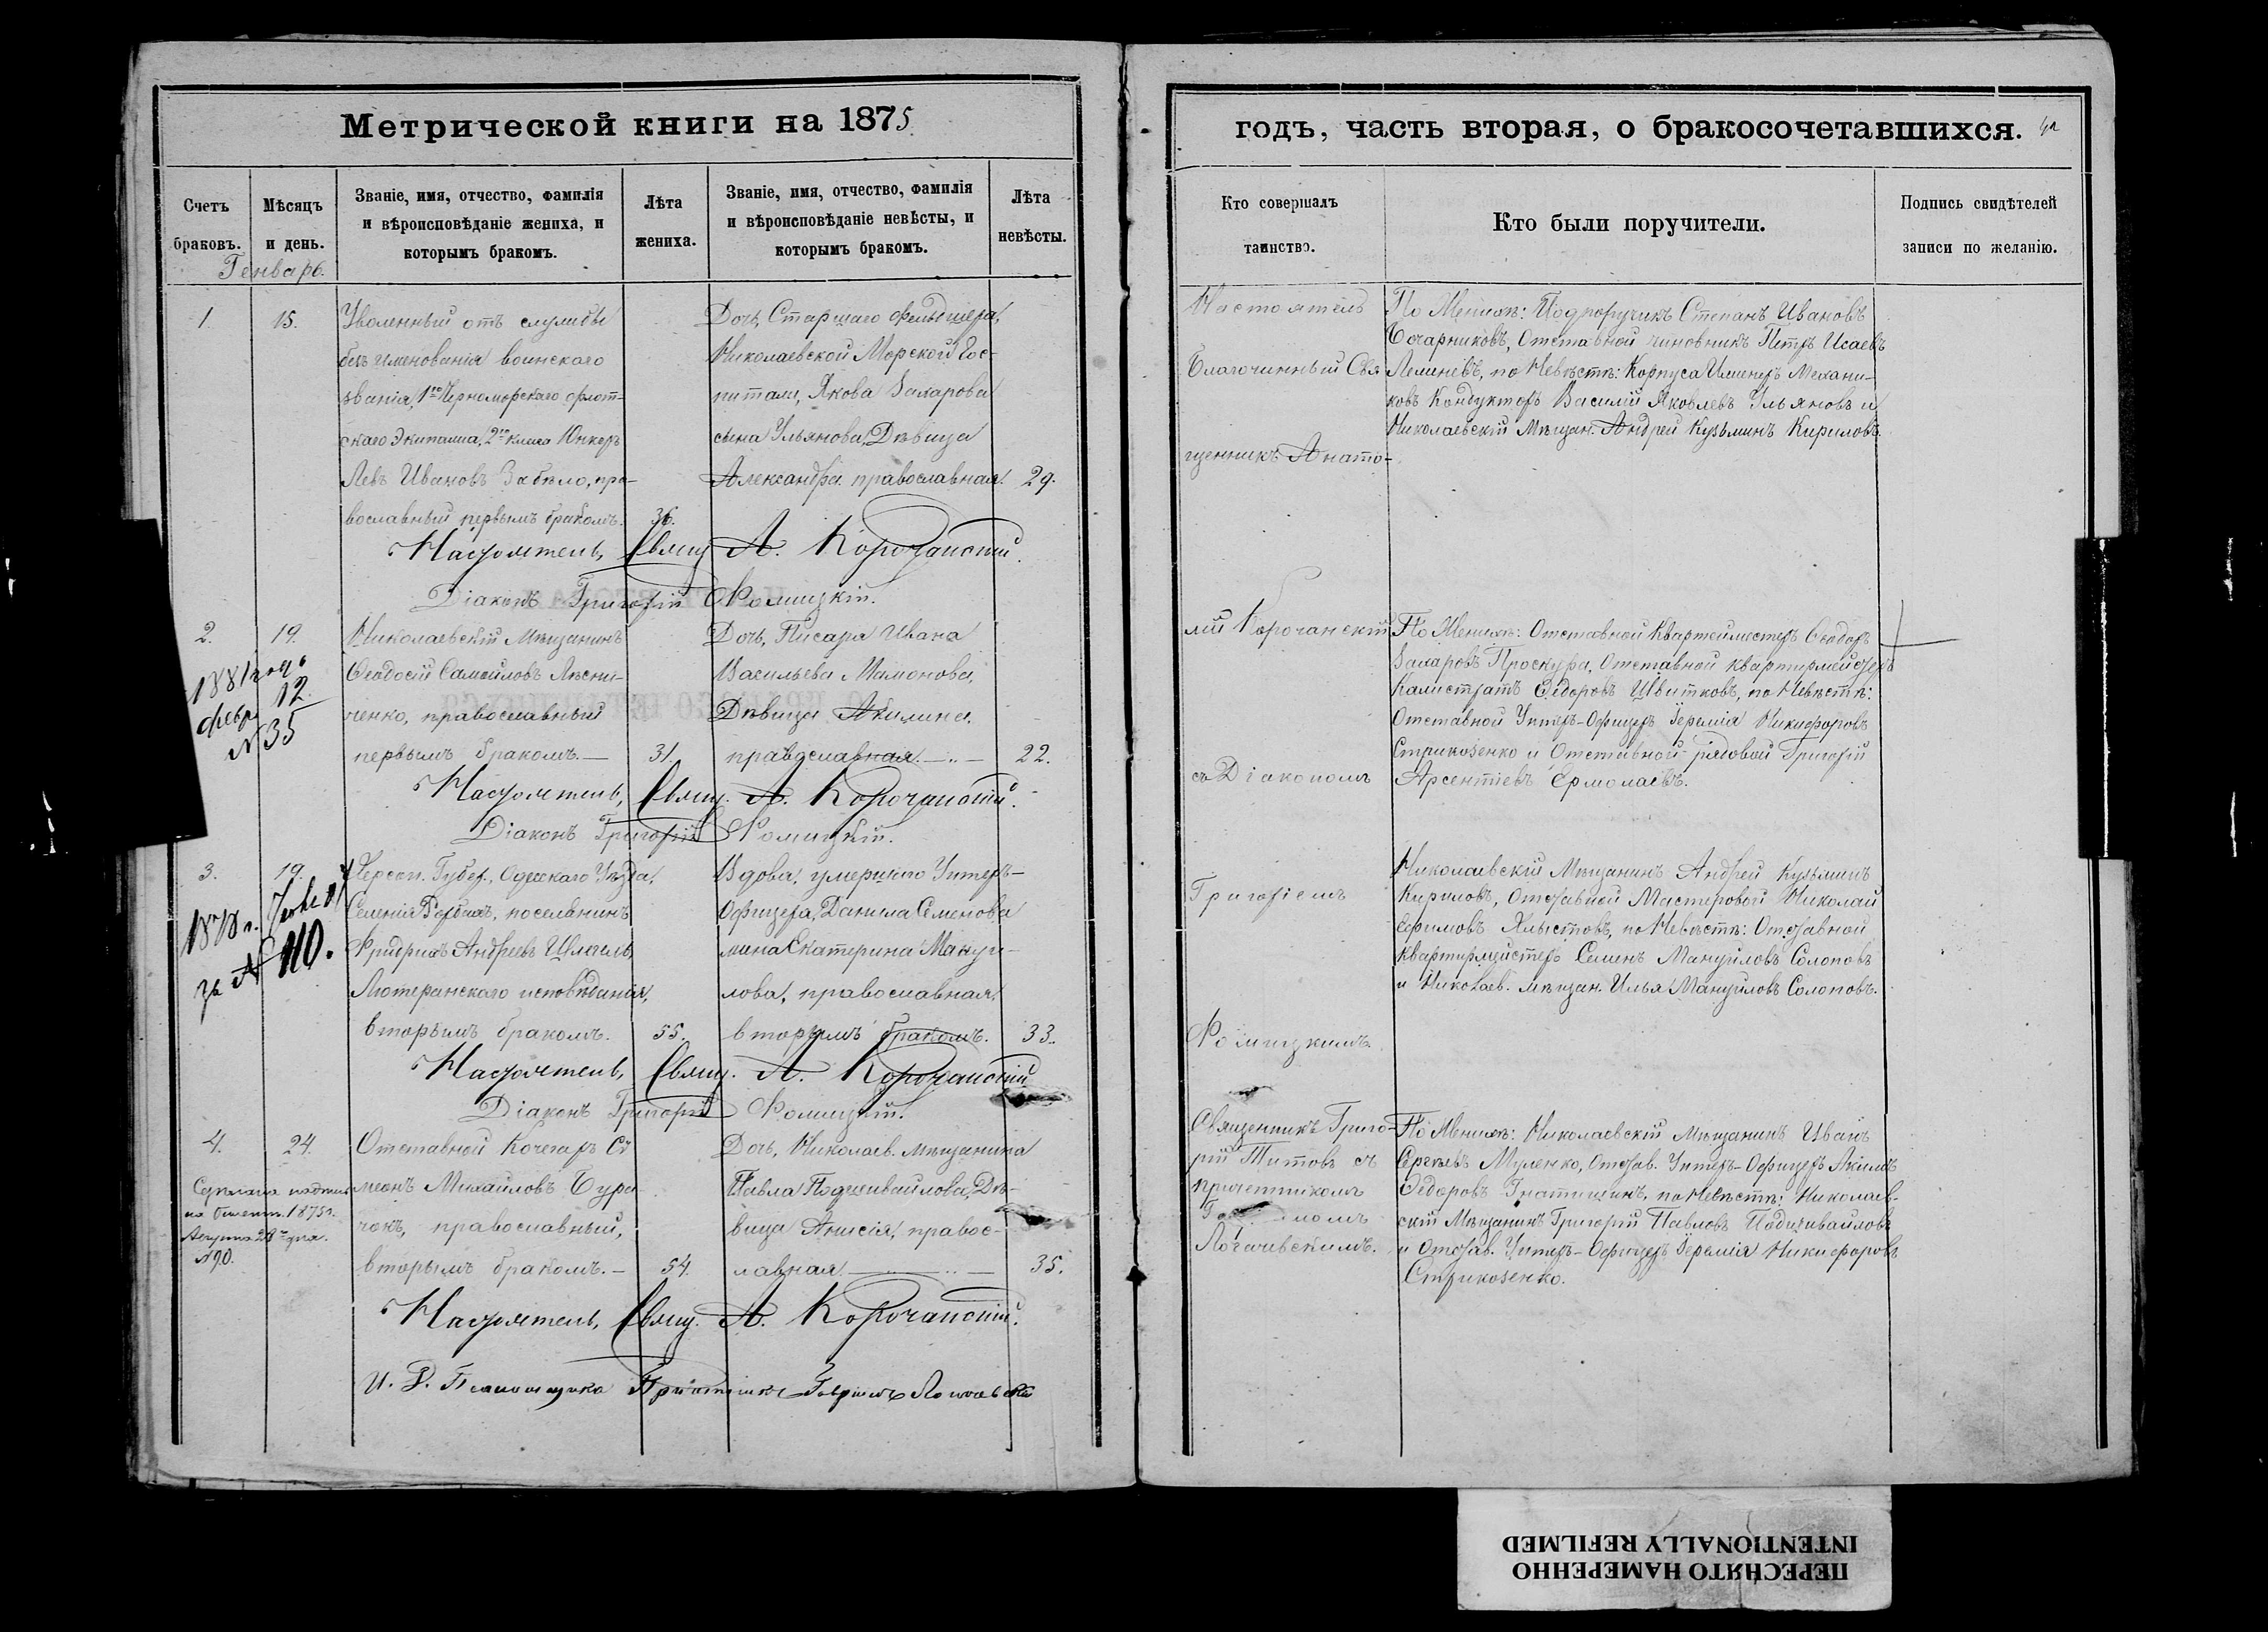 Метрической книги на 1875
Счетъ браковъ.
Мѣсяцъ и день.
Званіе, имя, отчество, фамилія и вѣроисповѣданіе жениха, и которымъ бракомъ.
Лѣта жениха.
Званіе, имя, отчество, фамилія и вѣроисповѣданіе невѣсты, и которымъ бракомъ.
Лѣта невѣсты.
Генварь.
1.
15.
Уволенный отъ службы
безъ именованія воинскаго
званія, 1го Черноморскаго флот-
скаго Экипажа, 2го класса Юнкеръ
Левъ Ивановъ Забѣло, пра-
вославный первымъ бракомъ.
36.
Дочь, Старшаго Фельдшера,
Николаевской Морской Гос-
питали, Якова Захарова
сына Ульянова, Дѣвица
Александра православная.
29.
Настоятель, Свящ. А. Корочанскій.
Діаконъ Григорій Ромицкій.
2.
19.
1881 года
февр 12
№ 35
Николаевскій Мѣщанинъ
Ѳеодосій Самойловъ Лѣсни-
ченко, православный
первымъ бракомъ.—
31.
Дочь, Писаря Ивана
Васильева Мамонова,
Дѣвица Акилина,
православная.—
22.
Настоятель, Свящ. А. Корочанскій.
Діаконъ Григорій Ромицкій.
3.
19.
за № 110.
Херсон. Губер., Одесскаго Уѣзда,
Селенія Рорбахъ, поселянинъ
Фридрихъ Андреевъ Шлегель,
Лютеранскаго исповѣданія,
вторымъ бракомъ.
55.
Вдова, умершаго Унтеръ-
Офицера, Данила Семенова
жена Екатерина Мануи-
лова, православная,
вторымъ бракомъ.
33.
Настоятель, Свящ. А. Корочанскій
Діаконъ Григорій Ромицкій.
4.
24.
на билетъ 1875 г.
Августа 28 дня.
№ 90.
Отставной Кочегаръ Си
меонъ Михайловъ Бура
чокъ, православный,
вторымъ бракомъ.—
54.
Дочь, Николаев. мѣщанина
Павла Подешивайлова, Дѣ-
вица Анисія, правос-
лавная
35.
Настоятель, Свящ. А. Корочанскій.
И. Д. Псаломщика Причетникъ Гавріилъ
годъ, часть вторая, о бракосочетавшихся.
Кто совершалъ таинство.
Кто были поручители.
Подпись свидѣтелей записи по желанію.
Настоятель
Благочинный Свя
щенникъ Анато-
лій Корочанскій
съ Діакономъ
Григоріемъ
Ромицкимъ.
По Женихѣ: Подпоручикъ Степанъ Ивановъ
Бочарниковъ, Отставной чиновникъ Петръ Исаевъ
по Невѣстѣ: Корпуса Инженеръ Механи-
ковъ Кондукторъ Василій Яковлевъ Ульяновъ и
Николаевскій Мѣщан. Андрей Кузьминъ Кириловъ.
По Женихѣ: Отставной Квартеймистеръ Ѳеодоръ
Захаровъ Проскура, Отставной квартирмейстеръ
Калистратъ Ѳедоровъ Цвитковъ, по Невѣстѣ:
Отставной Унтеръ-Офицеръ Іеремія Никифоровъ
Стрикозенко и Отставной рядовой Григорій
Арсентіевъ Ермолаевъ.
Николаевскій Мѣщанинъ Андрей Кузьминъ
Кириловъ, Отставной Мастеровой Николай
Ефимовъ Хлыстовъ, по Невѣстѣ: Отставной
Квартирмейстеръ Семенъ Мануиловъ Солоповъ
и Николаев. мѣщан. Илья Мануиловъ Солоповъ.
Священникъ Григо-
рій Титовъ съ
причетникомъ
По Женихѣ: Николаевскій мѣщанинъ Иванъ
Сергѣевъ Муленко, Отстав. Унтеръ-Офицеръ Акимъ
Ѳедоровъ Игнатишинъ, по Невѣстѣ: Николаев-
скій Мѣщанинъ Григорій Павловъ Подешивайловъ
и Отстав. Унтеръ-Офицеръ Іеремія Никифоровъ
Стрикозенко.
ПЕРЕСНЯТО НАМЕРЕННО
INTENTIONALLY REFILMED